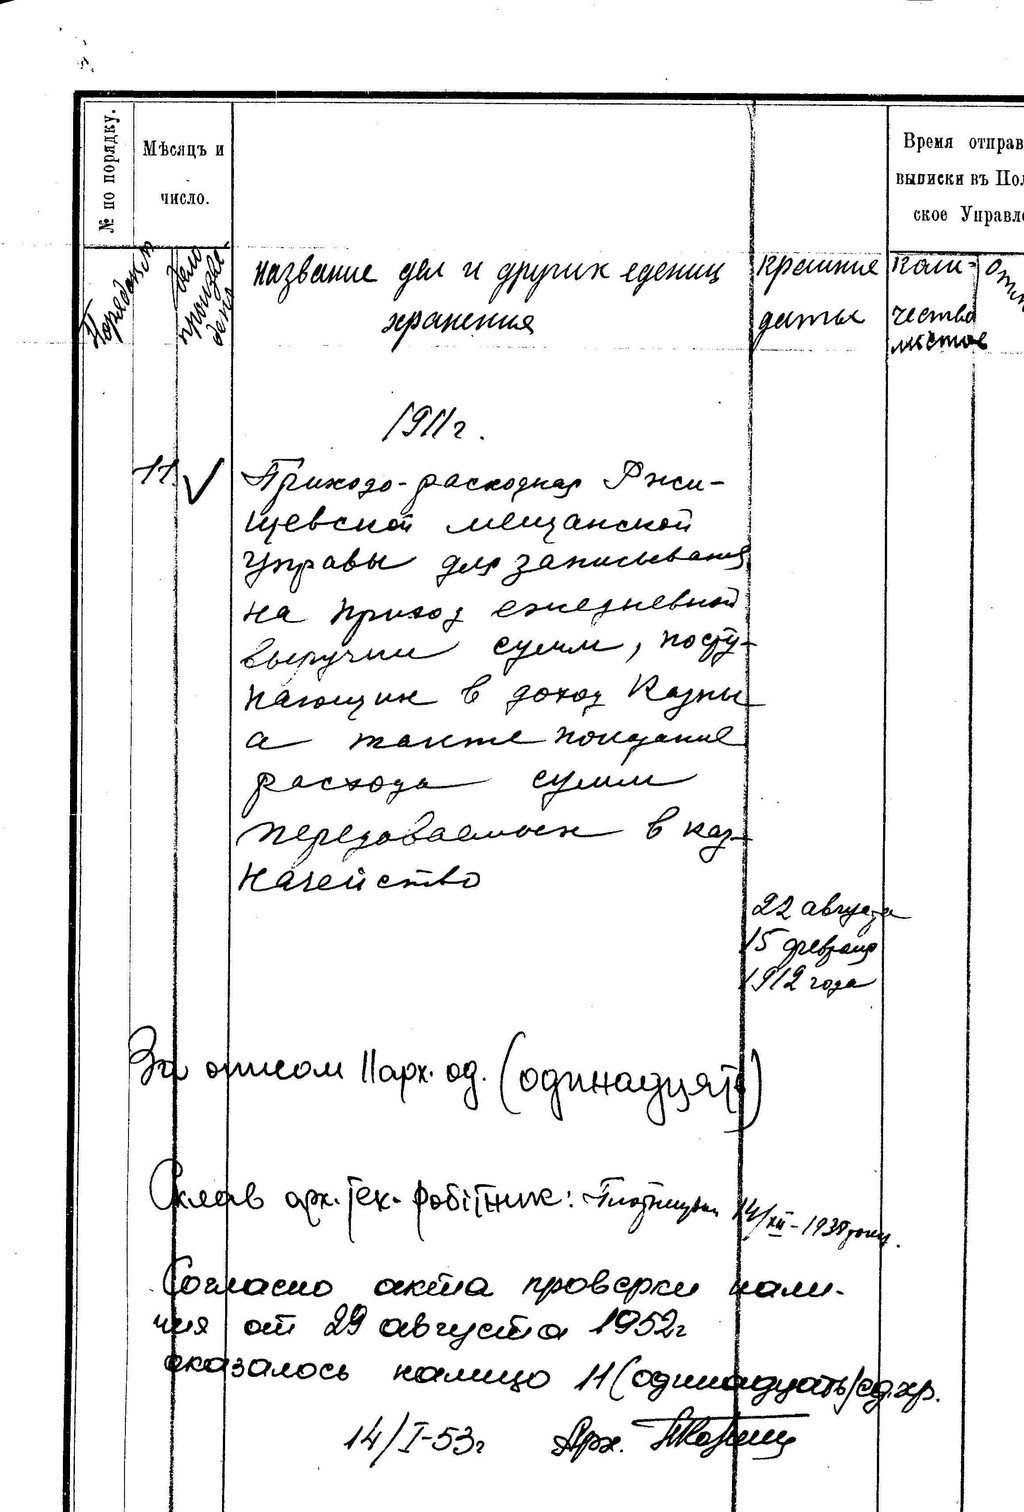 № по порядку.
Мѣсяцъ и
число.
Время отправ
выписки въ Пол
ское Управле
название дел и других едениц
хранения
крайние
даты
коли-
чество
листов
1911 г.
11. ✓
Приходо-расходная Ржи-
щевской мещанской
управы для записывания
на приход ежедневной
выручки сумм, посту-
пающих в доход Казны
а также
расхода сумм
передаваемых в каз-
начейство
22 августа
15 февраля
1912 года
За описом 11 арх. од. (одинадцять)
Склав арх. тех. робітник: 14/XII-193
Согласно акта проверки нали-
чия от 29 августа 1952 г
оказалось налицо 11 (одинадцать) ед. хр.
14/I-53 г Арх.